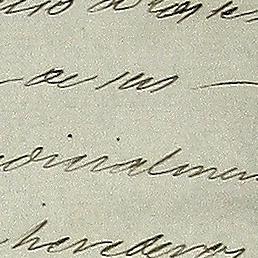 de sus
udicialmen
herederos